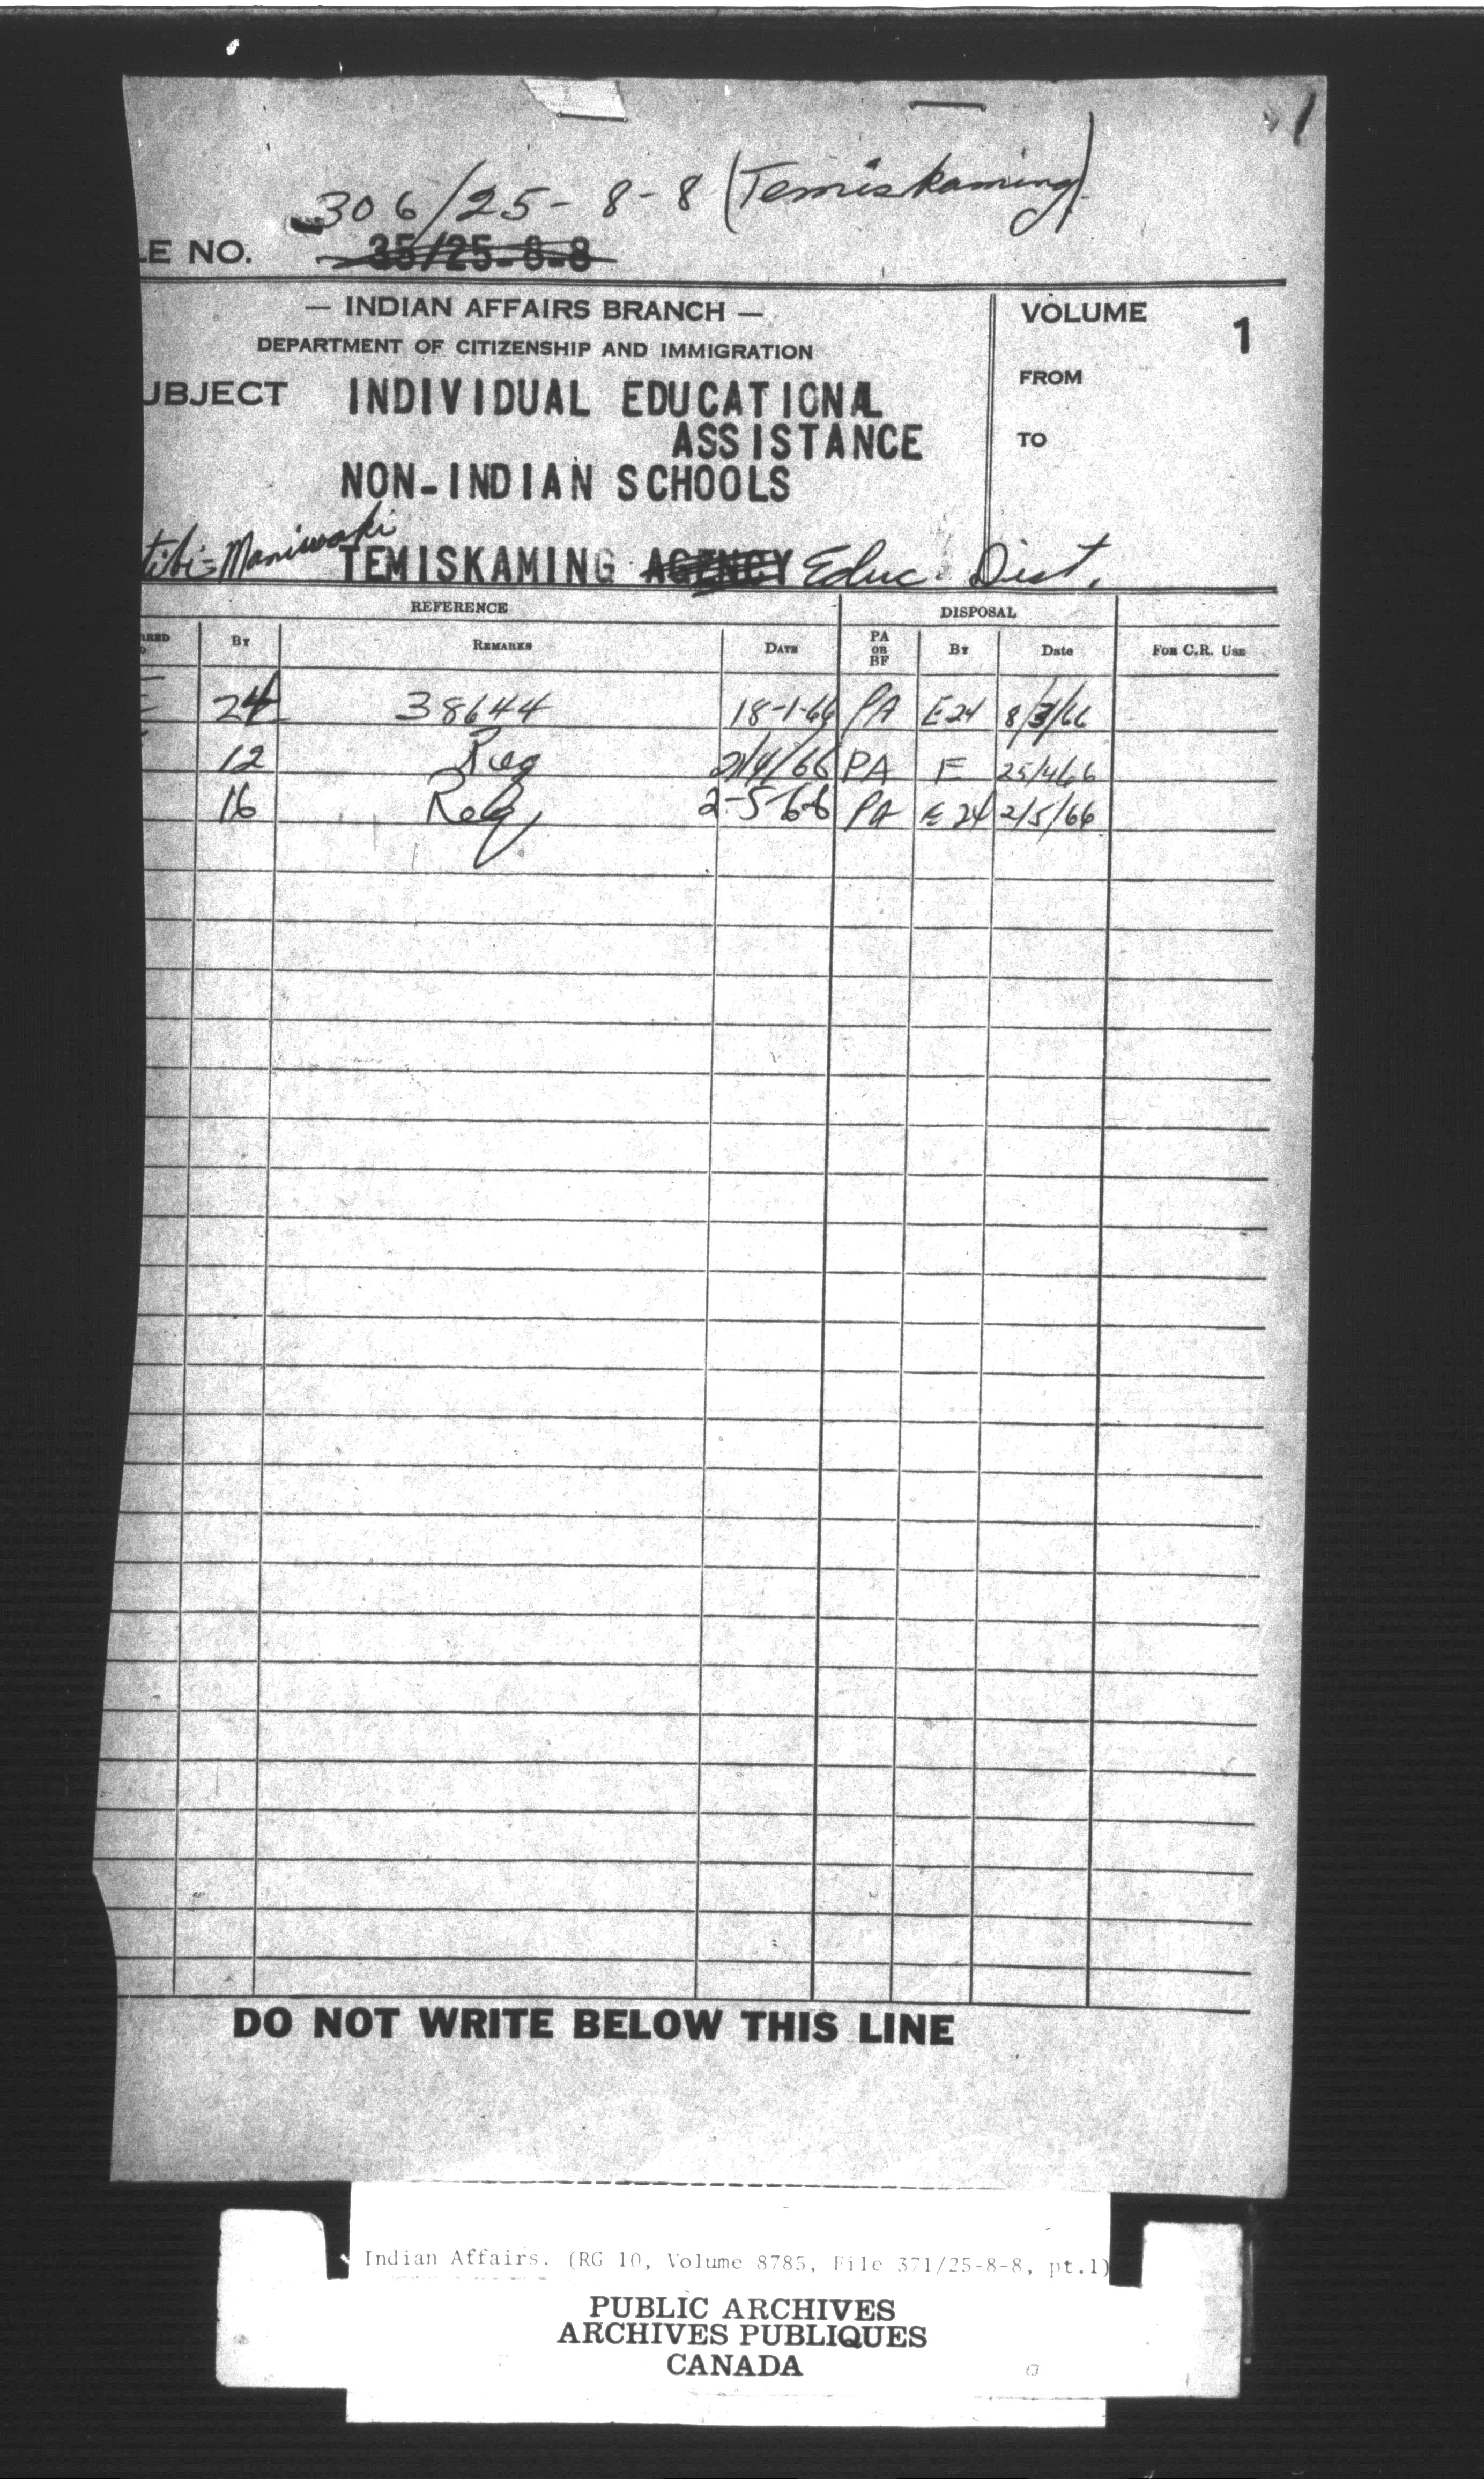 306/25-8-8 (Temiskaming)
LE NO. 35/25-8-8
— INDIAN AFFAIRS BRANCH —
DEPARTMENT OF CITIZENSHIP AND IMMIGRATION
VOLUME 1
FROM
TO
UBJECT INDIVIDUAL EDUCATIONAL
ASSISTANCE
NON-INDIAN SCHOOLS
tibi-Maniwaki
TEMISKAMING AGENCY Educ. Dist.
REFERENCE DISPOSAL
RRED BY REMARKS DATE PA OR BF BY Date FOR C.R. USE
24 38644 18-1-66 PA E24 8/3/66
12 Req 21/4/66 PA E 25/4/66
16 Req 2-5-66 PA E 24 2/5/66
DO NOT WRITE BELOW THIS LINE
Indian Affairs. (RG 10, Volume 8785, File 371/25-8-8, pt.1)
PUBLIC ARCHIVES
ARCHIVES PUBLIQUES
CANADA